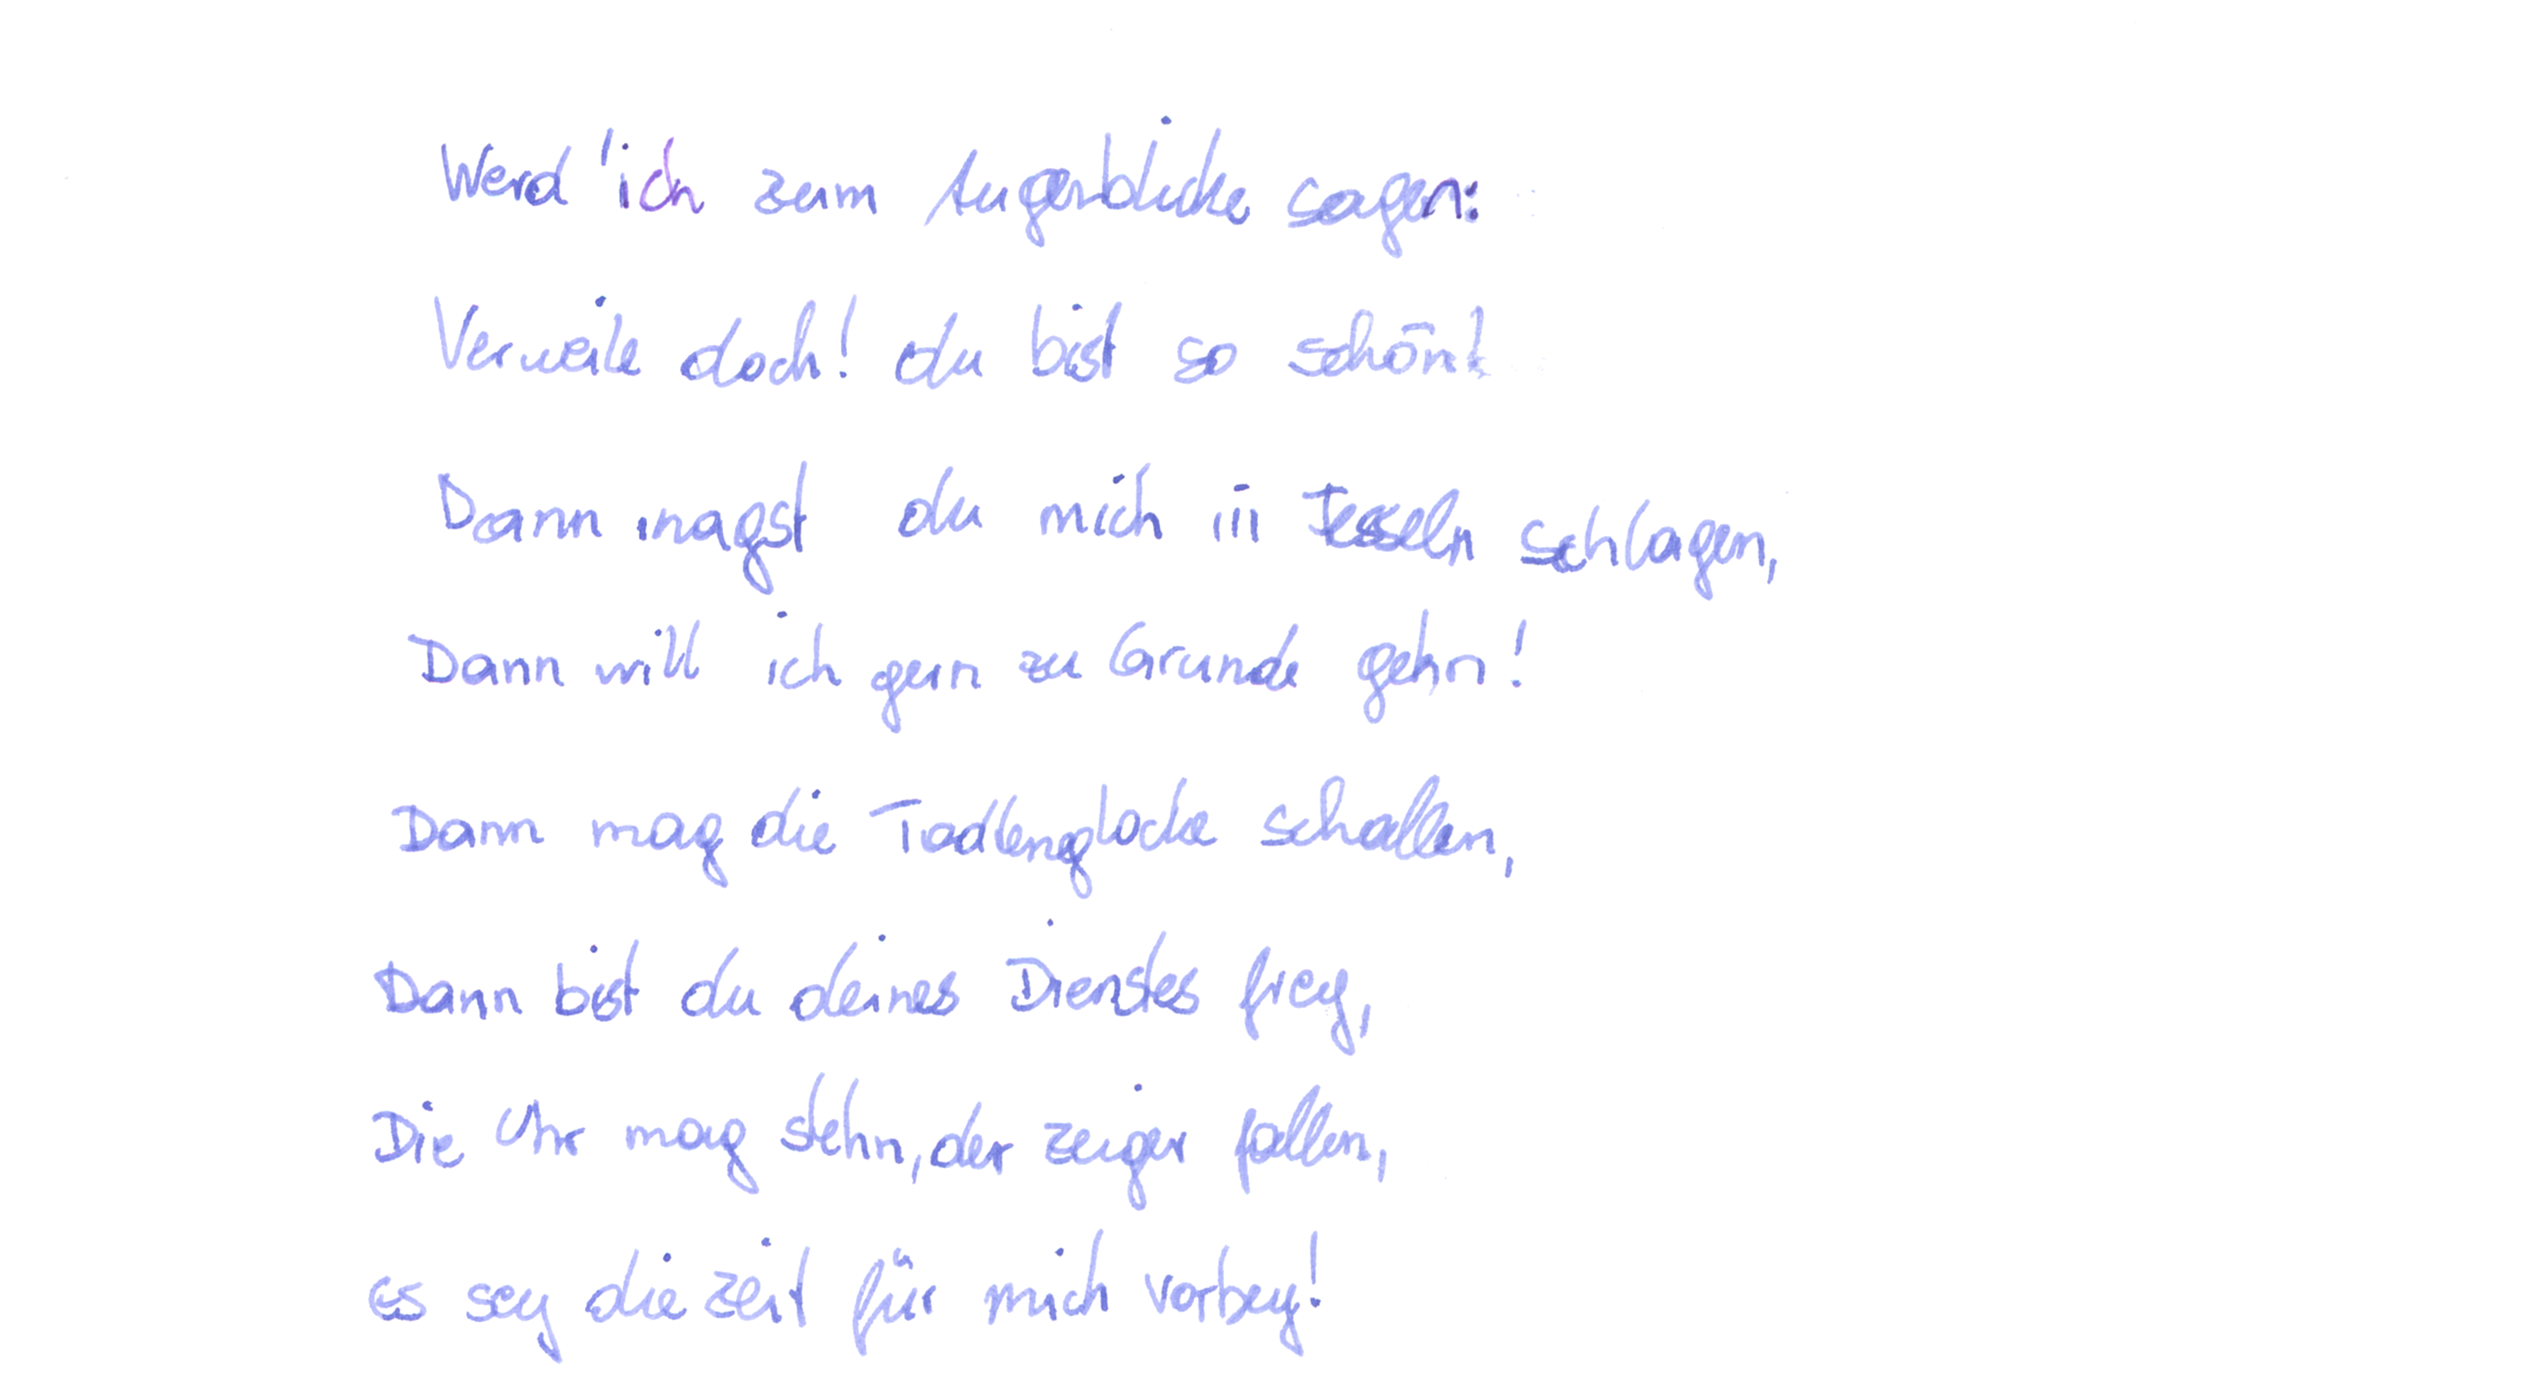 Werd 'ich zum Augenblicke sagen:
Verweile doch! du bist so schön!
Dann magst du mich in Fesseln schlagen,
Dann will ich gern zu Grunde gehn!
Dann mag die Todtenglocke schallen,
Dann bist du deines Dienstes frey,
Die Uhr mag stehn, der Zeiger fallen,
Es sey die Zeit für mich vorbey!